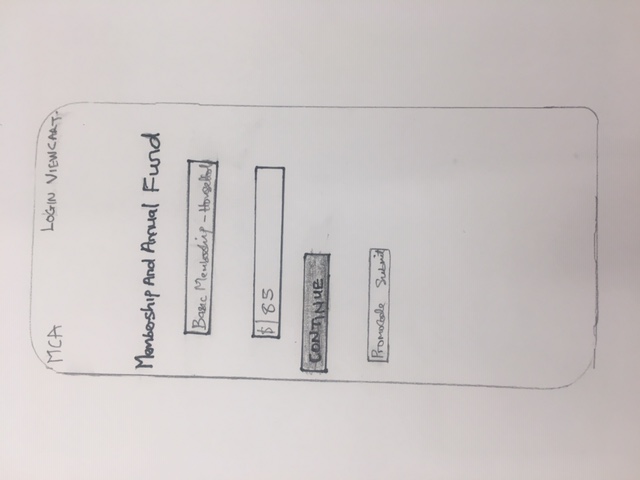 MCA LOGIN VIEWCART
Membership And Annual Fund
Basic Membership - Household
$ 85
CONTINUE
Promocode Submit